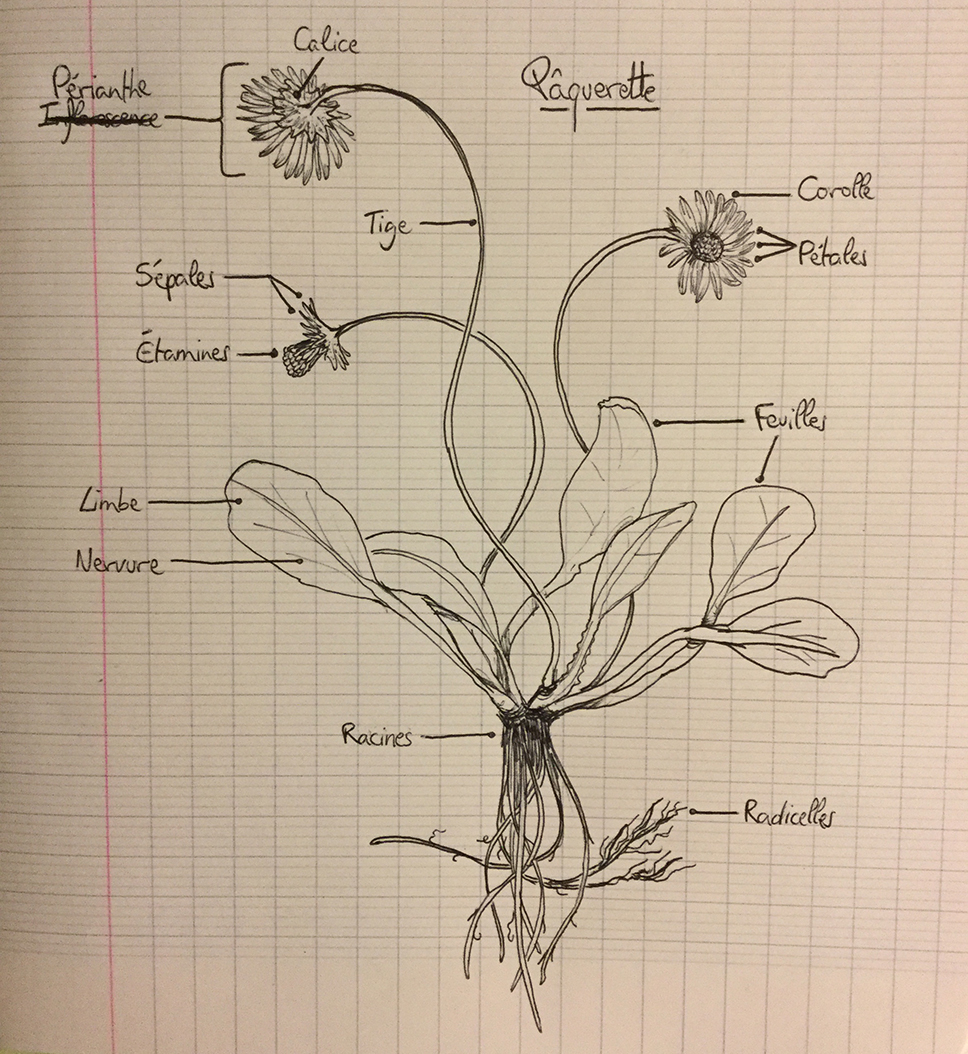 Calice
Périanthe
Inflorescence
Pâquerette
Corolle
Pétales
Tige
Sépales
Étamines
Feuilles
Limbe
Nervure
Racines
Radicelles